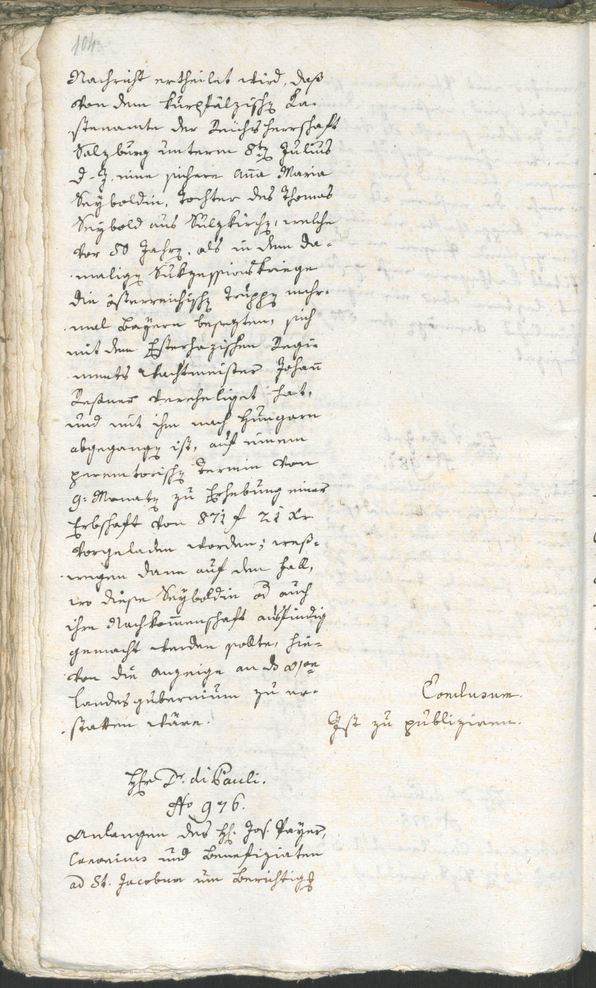 104.
Nachricht ertheilet wird, daß
von dem kurpfälzischen Ka-
stenamte der Reichsherrschaft
Sulzbürg unterm 8ten Julius
d. J. eine sichere Anna Maria
Seyboldin, Tochter des Thomas
Seybold aus Sulzkirchen, welche
vor 50 Jahren, als in dem da-
maligen Sukzessionskriege
die österreichischen Truppen mehr-
mal Bayern besezten, sich
mit dem Esterhazischen Regi-
ments Wachtmeister Johann
Reßner verehelichet hat,
und mit ihm nach Hungarn
abgegangen ist, auf einem
peremtorischen Termin von
9. Monaten zu Erhebung einer
Erbschaft von 871 f 21 Xr
vorgeladen worden; weß-
wegen dann auf den Fall,
wo diese Seyboldin od auch
ihre Nachkommenschaft ausfindig
gemacht werden sollte, hie-
von die Anzeige an das
Landesgubernium zu er-
statten wäre.
Conclusum.
Ist zu publiziren.
Hr Dr. di Pauli.
No 976.
Anlangen des H. Jos. Payer,
Canonicus und Benefiziaten
ad St. Jacobum um Berichtig